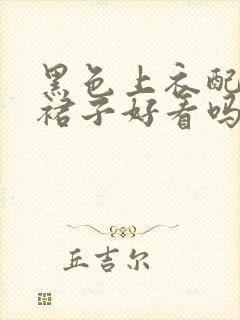 黑色上衣配
裙子好看吗
丘吉尔